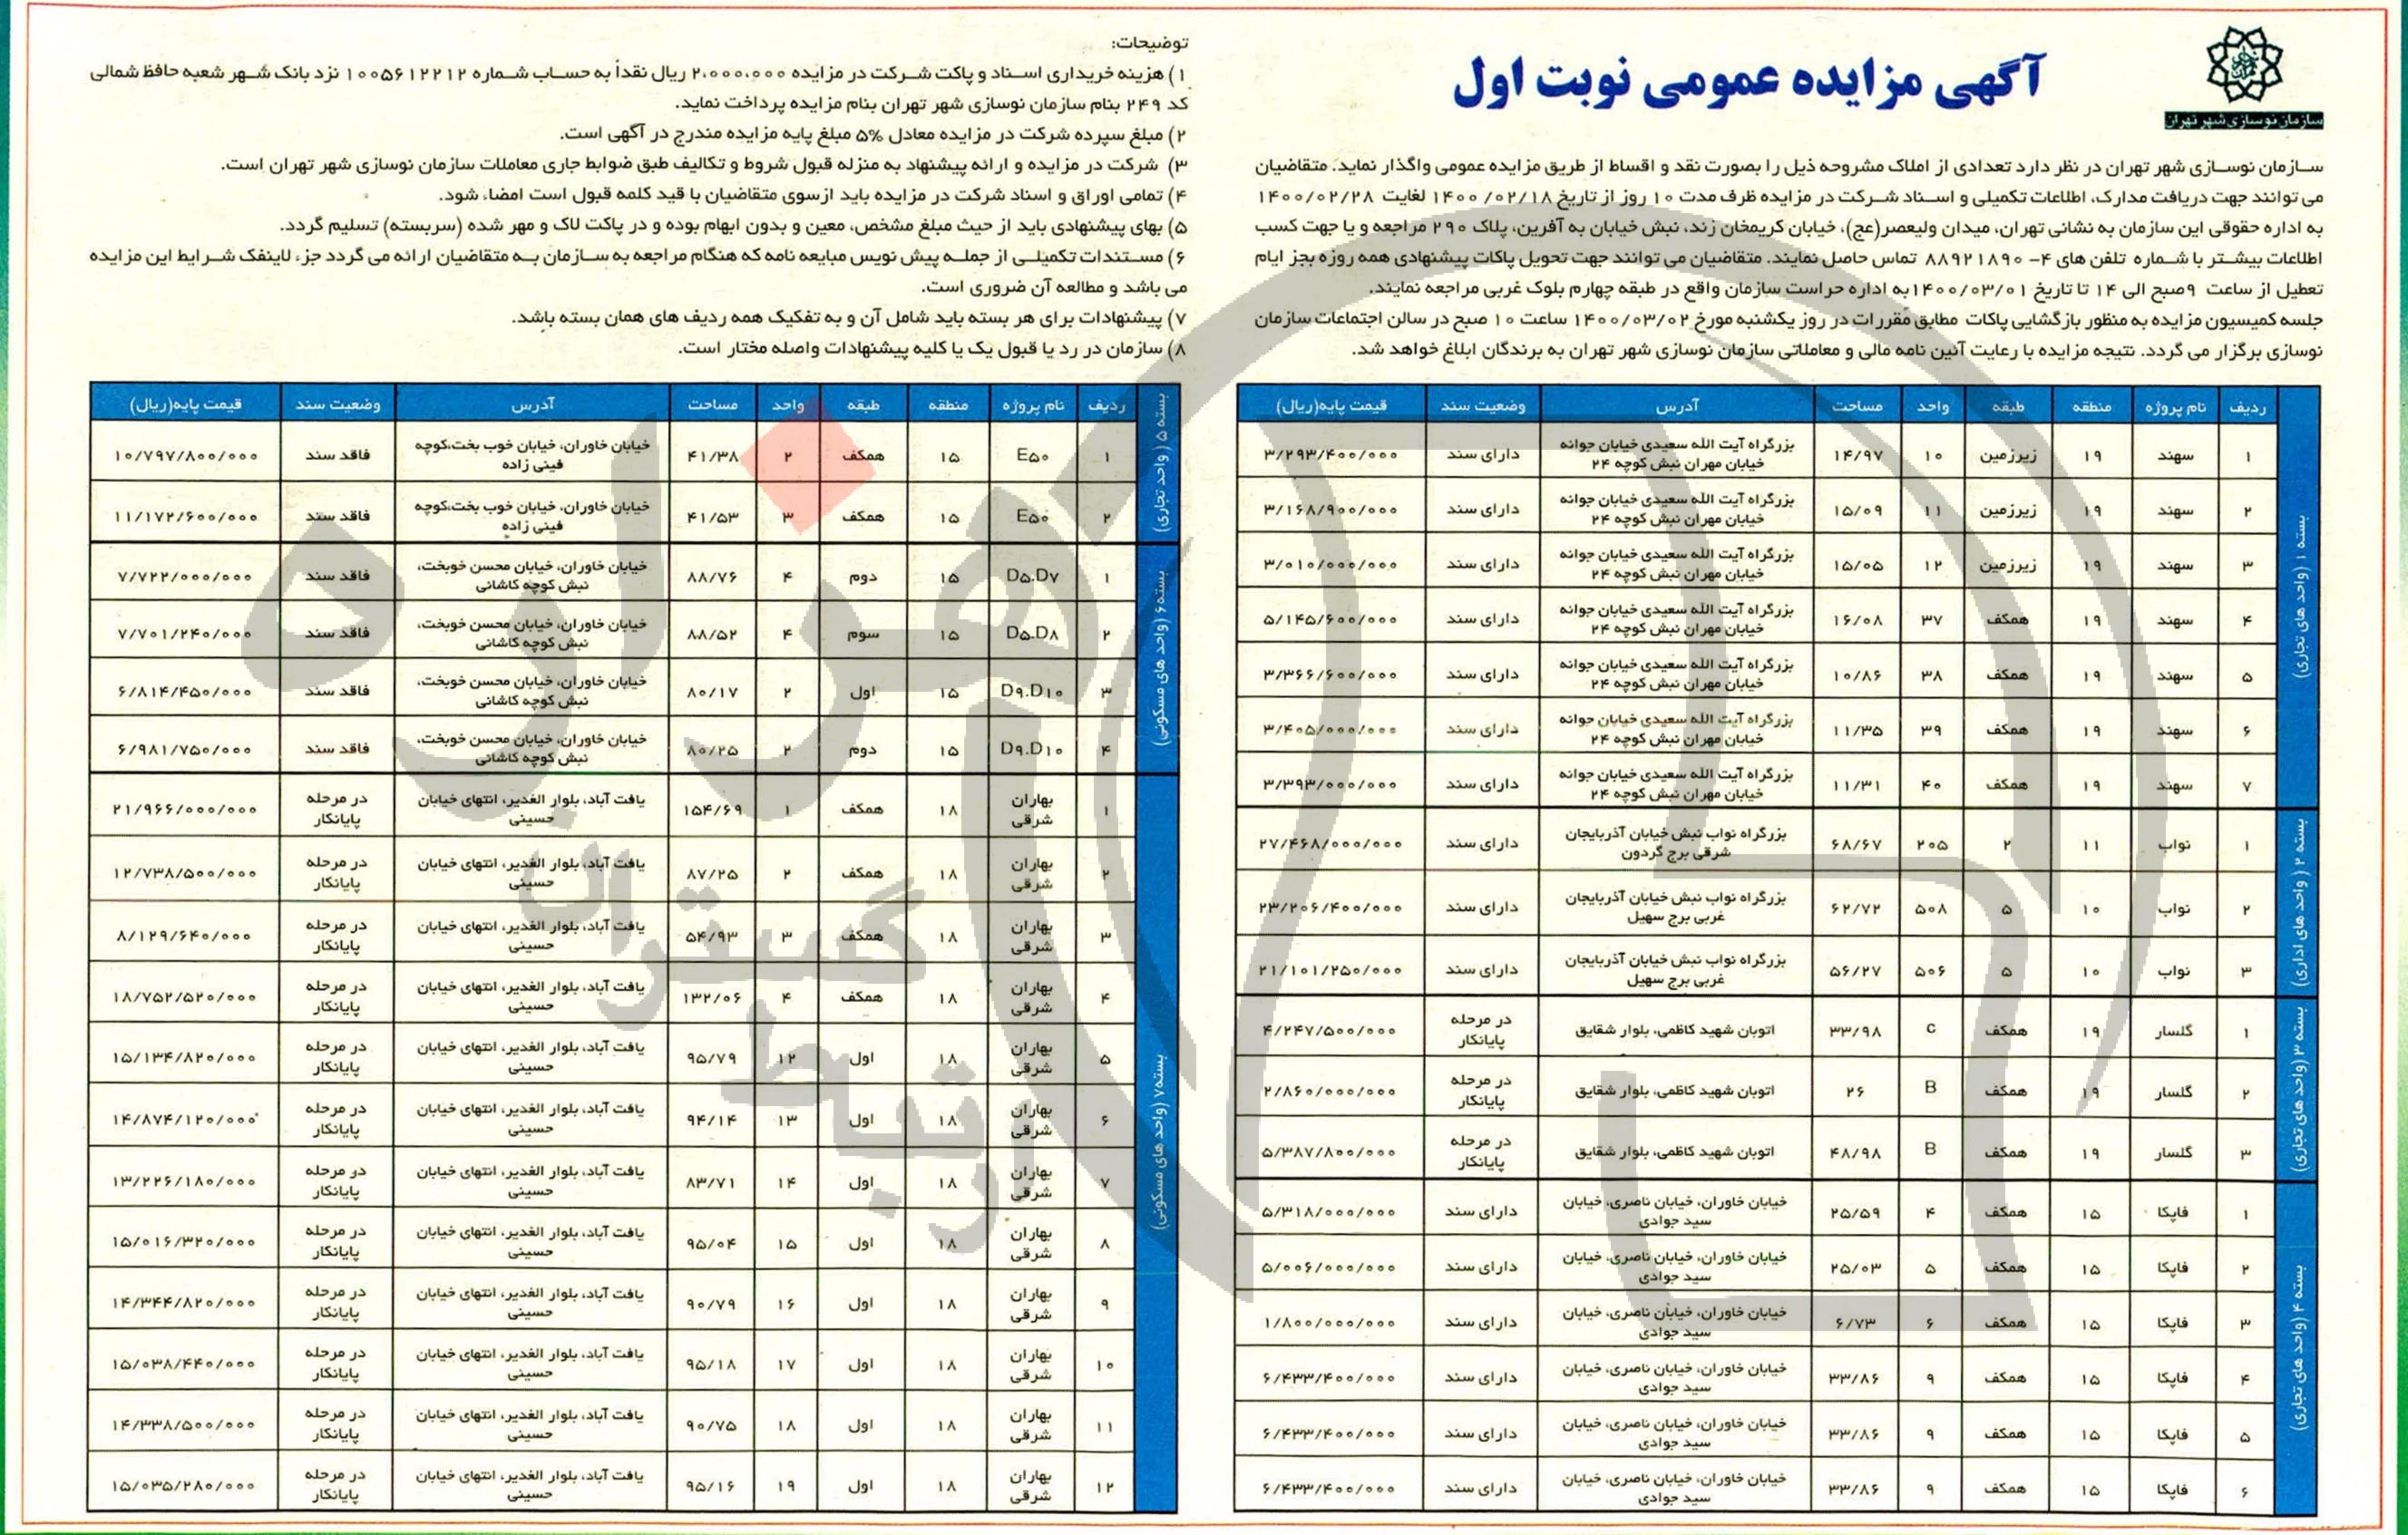 سازمان نوسازی شهر تهران
آگهی مزایده عمومی نوبت اول
سـازمان نوسـازی شهر تهران در نظر دارد تعدادی از املاک مشروحه ذیل را بصورت نقد و اقساط از طریق مزایده عمومی واگذار نماید. متقاضیان
می توانند جهت دریافت مدارک، اطلاعات تکمیلی و اسـناد شـرکت در مزایده ظرف مدت ۱۰ روز از تاریخ ۱۴۰۰/۰۲/۱۸ لغایت ۱۴۰۰/۰۲/۲۸
به اداره حقوقی این سازمان به نشانی تهران، میدان ولیعصر(عج)، خیابان کریمخان زند، نبش خیابان به آفرین، پلاک ۲۹۰ مراجعه و یا جهت کسب
اطلاعات بیشـتر با شـماره تلفن های ۴- ۸۸۹۲۱۸۹۰ تماس حاصل نمایند. متقاضیان می توانند جهت تحویل پاکات پیشنهادی همه روزه بجز ایام
تعطیل از ساعت ۹صبح الی ۱۴ تا تاریخ ۱۴۰۰/۰۳/۰۱به اداره حراست سازمان واقع در طبقه چهارم بلوک غربی مراجعه نمایند.
جلسه کمیسیون مزایده به منظور بازگشایی پاکات مطابق مقررات در روز یکشنبه مورخ ۱۴۰۰/۰۳/۰۲ ساعت ۱۰ صبح در سالن اجتماعات سازمان
نوسازی برگزار می گردد. نتیجه مزایده با رعایت آئین نامه مالی و معاملاتی سازمان نوسازی شهر تهران به برندگان ابلاغ خواهد شد.
ردیف نام پروژه منطقه طبقه واحد مساحت آدرس وضعیت سند قیمت پایه(ریال)
بسته ۱ (واحد های تجاری)
۱ سهند ۱۹ زیرزمین ۱۰ ۱۴/۹۷ بزرگراه آیت الله سعیدی خیابان جوانه خیابان مهران نبش کوچه ۲۴ دارای سند ۳/۲۹۳/۴۰۰/۰۰۰
۲ سهند ۱۹ زیرزمین ۱۱ ۱۵/۰۹ بزرگراه آیت الله سعیدی خیابان جوانه خیابان مهران نبش کوچه ۲۴ دارای سند ۳/۱۶۸/۹۰۰/۰۰۰
۳ سهند ۱۹ زیرزمین ۱۲ ۱۵/۰۵ بزرگراه آیت الله سعیدی خیابان جوانه خیابان مهران نبش کوچه ۲۴ دارای سند ۳/۰۱۰/۰۰۰/۰۰۰
۴ سهند ۱۹ همکف ۳۷ ۱۶/۰۸ بزرگراه آیت الله سعیدی خیابان جوانه خیابان مهران نبش کوچه ۲۴ دارای سند ۵/۱۴۵/۶۰۰/۰۰۰
۵ سهند ۱۹ همکف ۳۸ ۱۰/۸۶ بزرگراه آیت الله سعیدی خیابان جوانه خیابان مهران نبش کوچه ۲۴ دارای سند ۳/۳۶۶/۶۰۰/۰۰۰
۶ سهند ۱۹ همکف ۳۹ ۱۱/۳۵ بزرگراه آیت الله سعیدی خیابان جوانه خیابان مهران نبش کوچه ۲۴ دارای سند ۳/۴۰۵/۰۰۰/۰۰۰
۷ سهند ۱۹ همکف ۴۰ ۱۱/۳۱ بزرگراه آیت الله سعیدی خیابان جوانه خیابان مهران نبش کوچه ۲۴ دارای سند ۳/۳۹۳/۰۰۰/۰۰۰
بسته ۲ ( واحد های اداری)
۱ نواب ۱۱ ۲ ۲۰۵ ۶۸/۶۷ بزرگراه نواب نبش خیابان آذربایجان شرقی برج گردون دارای سند ۲۷/۴۶۸/۰۰۰/۰۰۰
۲ نواب ۱۰ ۵ ۵۰۸ ۶۲/۷۲ بزرگراه نواب نبش خیابان آذربایجان غربی برج سهیل دارای سند ۲۳/۲۰۶/۴۰۰/۰۰۰
۳ نواب ۱۰ ۵ ۵۰۶ ۵۶/۲۷ بزرگراه نواب نبش خیابان آذربایجان غربی برج سهیل دارای سند ۲۱/۱۰۱/۲۵۰/۰۰۰
بسته ۳ (واحد های تجاری)
۱ گلسار ۱۹ همکف C ۳۳/۹۸ اتوبان شهید کاظمی، بلوار شقایق در مرحله پایانکار ۴/۲۴۷/۵۰۰/۰۰۰
۲ گلسار ۱۹ همکف B ۲۶ اتوبان شهید کاظمی، بلوار شقایق در مرحله پایانکار ۲/۸۶۰/۰۰۰/۰۰۰
۳ گلسار ۱۹ همکف B ۴۸/۹۸ اتوبان شهید کاظمی، بلوار شقایق در مرحله پایانکار ۵/۳۸۷/۸۰۰/۰۰۰
بسته ۴ (واحد های تجاری)
۱ فاپکا ۱۵ همکف ۴ ۲۵/۵۹ خیابان خاوران، خیابان ناصری، خیابان سید جوادی دارای سند ۵/۳۱۸/۰۰۰/۰۰۰
۲ فاپکا ۱۵ همکف ۵ ۲۵/۰۳ خیابان خاوران، خیابان ناصری، خیابان سید جوادی دارای سند ۵/۰۰۶/۰۰۰/۰۰۰
۳ فاپکا ۱۵ همکف ۶ ۶/۷۳ خیابان خاوران، خیابان ناصری، خیابان سید جوادی دارای سند ۱/۸۰۰/۰۰۰/۰۰۰
۴ فاپکا ۱۵ همکف ۹ ۳۳/۸۶ خیابان خاوران، خیابان ناصری، خیابان سید جوادی دارای سند ۶/۴۳۳/۴۰۰/۰۰۰
۵ فاپکا ۱۵ همکف ۹ ۳۳/۸۶ خیابان خاوران، خیابان ناصری، خیابان سید جوادی دارای سند ۶/۴۳۳/۴۰۰/۰۰۰
۶ فاپکا ۱۵ همکف ۹ ۳۳/۸۶ خیابان خاوران، خیابان ناصری، خیابان سید جوادی دارای سند ۶/۴۳۳/۴۰۰/۰۰۰
توضیحات:
۱) هزینه خریداری اسـناد و پاکت شـرکت در مزایده ۲،۰۰۰،۰۰۰ ریال نقداً به حسـاب شـماره ۱۰۰۵۶۱۲۲۱۲ نزد بانک شـهر شعبه حافظ شمالی
کد ۲۴۹ بنام سازمان نوسازی شهر تهران بنام مزایده پرداخت نماید.
۲) مبلغ سپرده شرکت در مزایده معادل ۵% مبلغ پایه مزایده مندرج در آگهی است.
۳) شرکت در مزایده و ارائه پیشنهاد به منزله قبول شروط و تکالیف طبق ضوابط جاری معاملات سازمان نوسازی شهر تهران است.
۴) تمامی اوراق و اسناد شرکت در مزایده باید ازسوی متقاضیان با قید کلمه قبول است امضاء شود.
۵) بهای پیشنهادی باید از حیث مبلغ مشخص، معین و بدون ابهام بوده و در پاکت لاک و مهر شده (سربسته) تسلیم گردد.
۶) مسـتندات تکمیلـی از جملـه پیش نویس مبایعه نامه که هنگام مراجعه به سـازمان بـه متقاضیان ارائه می گردد جزء لاینفک شـرایط این مزایده
می باشد و مطالعه آن ضروری است.
۷) پیشنهادات برای هر بسته باید شامل آن و به تفکیک همه ردیف های همان بسته باشد.
۸) سازمان در رد یا قبول یک یا کلیه پیشنهادات واصله مختار است.
ردیف نام پروژه منطقه طبقه واحد مساحت آدرس وضعیت سند قیمت پایه(ریال)
بسته ۵ ( واحد تجاری)
۱ E۵۰ ۱۵ همکف ۲ ۴۱/۳۸ خیابان خاوران، خیابان خوب بخت،کوچه فینی زاده فاقد سند ۱۰/۷۹۷/۸۰۰/۰۰۰
۲ E۵۰ ۱۵ همکف ۳ ۴۱/۵۳ خیابان خاوران، خیابان خوب بخت،کوچه فینی زاده فاقد سند ۱۱/۱۷۲/۶۰۰/۰۰۰
بسته۶ (واحد های مسکونی)
۱ D۵.D۷ ۱۵ دوم ۴ ۸۸/۷۶ خیابان خاوران، خیابان محسن خوبخت، نبش کوچه کاشانی فاقد سند ۷/۷۲۲/۰۰۰/۰۰۰
۲ D۵.D۸ ۱۵ سوم ۴ ۸۸/۵۲ خیابان خاوران، خیابان محسن خوبخت، نبش کوچه کاشانی فاقد سند ۷/۷۰۱/۲۴۰/۰۰۰
۳ D۹.D۱۰ ۱۵ اول ۲ ۸۰/۱۷ خیابان خاوران، خیابان محسن خوبخت، نبش کوچه کاشانی فاقد سند ۶/۸۱۴/۴۵۰/۰۰۰
۴ D۹.D۱۰ ۱۵ دوم ۲ ۸۰/۲۵ خیابان خاوران، خیابان محسن خوبخت، نبش کوچه کاشانی فاقد سند ۶/۹۸۱/۷۵۰/۰۰۰
بسته۷ (واحد های مسکونی)
۱ بهاران شرقی ۱۸ همکف ۱ ۱۵۴/۶۹ یافت آباد، بلوار الغدیر، انتهای خیابان حسینی در مرحله پایانکار ۲۱/۹۶۶/۰۰۰/۰۰۰
۲ بهاران شرقی ۱۸ همکف ۲ ۸۷/۲۵ یافت آباد، بلوار الغدیر، انتهای خیابان حسینی در مرحله پایانکار ۱۲/۷۳۸/۵۰۰/۰۰۰
۳ بهاران شرقی ۱۸ همکف ۳ ۵۴/۹۳ یافت آباد، بلوار الغدیر، انتهای خیابان حسینی در مرحله پایانکار ۸/۱۲۹/۶۴۰/۰۰۰
۴ بهاران شرقی ۱۸ همکف ۴ ۱۳۲/۰۶ یافت آباد، بلوار الغدیر، انتهای خیابان حسینی در مرحله پایانکار ۱۸/۷۵۲/۵۲۰/۰۰۰
۵ بهاران شرقی ۱۸ اول ۱۲ ۹۵/۷۹ یافت آباد، بلوار الغدیر، انتهای خیابان حسینی در مرحله پایانکار ۱۵/۱۳۴/۸۲۰/۰۰۰
۶ بهاران شرقی ۱۸ اول ۱۳ ۹۴/۱۴ یافت آباد، بلوار الغدیر، انتهای خیابان حسینی در مرحله پایانکار ۱۴/۸۷۴/۱۲۰/۰۰۰
۷ بهاران شرقی ۱۸ اول ۱۴ ۸۳/۷۱ یافت آباد، بلوار الغدیر، انتهای خیابان حسینی در مرحله پایانکار ۱۳/۲۲۶/۱۸۰/۰۰۰
۸ بهاران شرقی ۱۸ اول ۱۵ ۹۵/۰۴ یافت آباد، بلوار الغدیر، انتهای خیابان حسینی در مرحله پایانکار ۱۵/۰۱۶/۳۲۰/۰۰۰
۹ بهاران شرقی ۱۸ اول ۱۶ ۹۰/۷۹ یافت آباد، بلوار الغدیر، انتهای خیابان حسینی در مرحله پایانکار ۱۴/۳۴۴/۸۲۰/۰۰۰
۱۰ بهاران شرقی ۱۸ اول ۱۷ ۹۵/۱۸ یافت آباد، بلوار الغدیر، انتهای خیابان حسینی در مرحله پایانکار ۱۵/۰۳۸/۴۴۰/۰۰۰
۱۱ بهاران شرقی ۱۸ اول ۱۸ ۹۰/۷۵ یافت آباد، بلوار الغدیر، انتهای خیابان حسینی در مرحله پایانکار ۱۴/۳۳۸/۵۰۰/۰۰۰
۱۲ بهاران شرقی ۱۸ اول ۱۹ ۹۵/۱۶ یافت آباد، بلوار الغدیر، انتهای خیابان حسینی در مرحله پایانکار ۱۵/۰۳۵/۲۸۰/۰۰۰